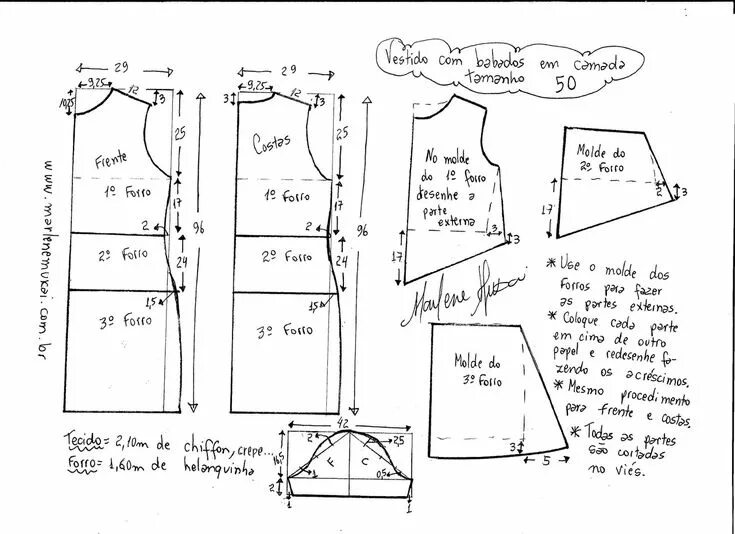 Vestido com babados em camada
tamanho 50
29
9,25
12
3
10,25
25
Frente
1º Forro
17
2
96
2º Forro
24
1,5
3º Forro
www.marlenemukai.com.br
29
9,25
12
3
3
25
Costas
1º Forro
17
2
96
2º Forro
24
1,5
3º Forro
No molde
do 1º forro
desenhe a
parte
externa
3
3
17
Marlene Mukai
Molde do
2º Forro
2
3
17
Molde do
3º Forro
3
5
* Use o molde dos
forros para fazer
as partes externas.
* Coloque cada parte
em cima de outro
papel e redesenhe fa-
zendo os acréscimos.
* Mesmo procedimento
para frente e costas.
* Todas as partes
são cortadas
no viés.
Tecido = 2,10m de chiffon, crepe...
Forro = 1,60m de helanquinha
42
2
2,5
16,5
F
C
1
0,5
2
1
1